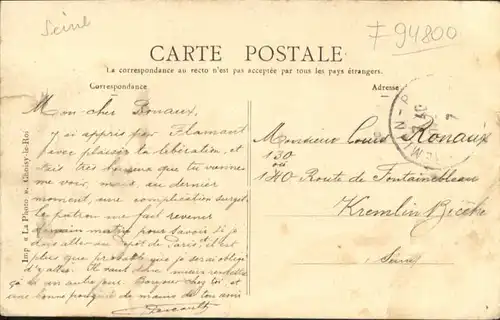 Seine
F 94800
CARTE POSTALE
La correspondance au recto n'est pas acceptée par tous les pays étrangers.
Correspondance
Adresse
Mon cher Bonaux,
J'ai appris par Flamant
avec plaisir ta libération, et
suis très heureux que tu viennes
me voir, mais au dernier
moment, une complication surgit.
Le patron me fait revenir
demain matin pour savoir si je
dois aller au dépôt de Paris et il est
plus que probable que je serai obligé
d'y aller. Il vaut donc mieux remettre
ça un autre jour. Bonjour chez toi, et
une bonne poignée de mains de ton ami
Monsieur Louis Bonaux
130
ou
140 Route de Fontainebleau
Kremlin Bicêtre
Seine
Imp. « La Photo », Choisy-le-Roi